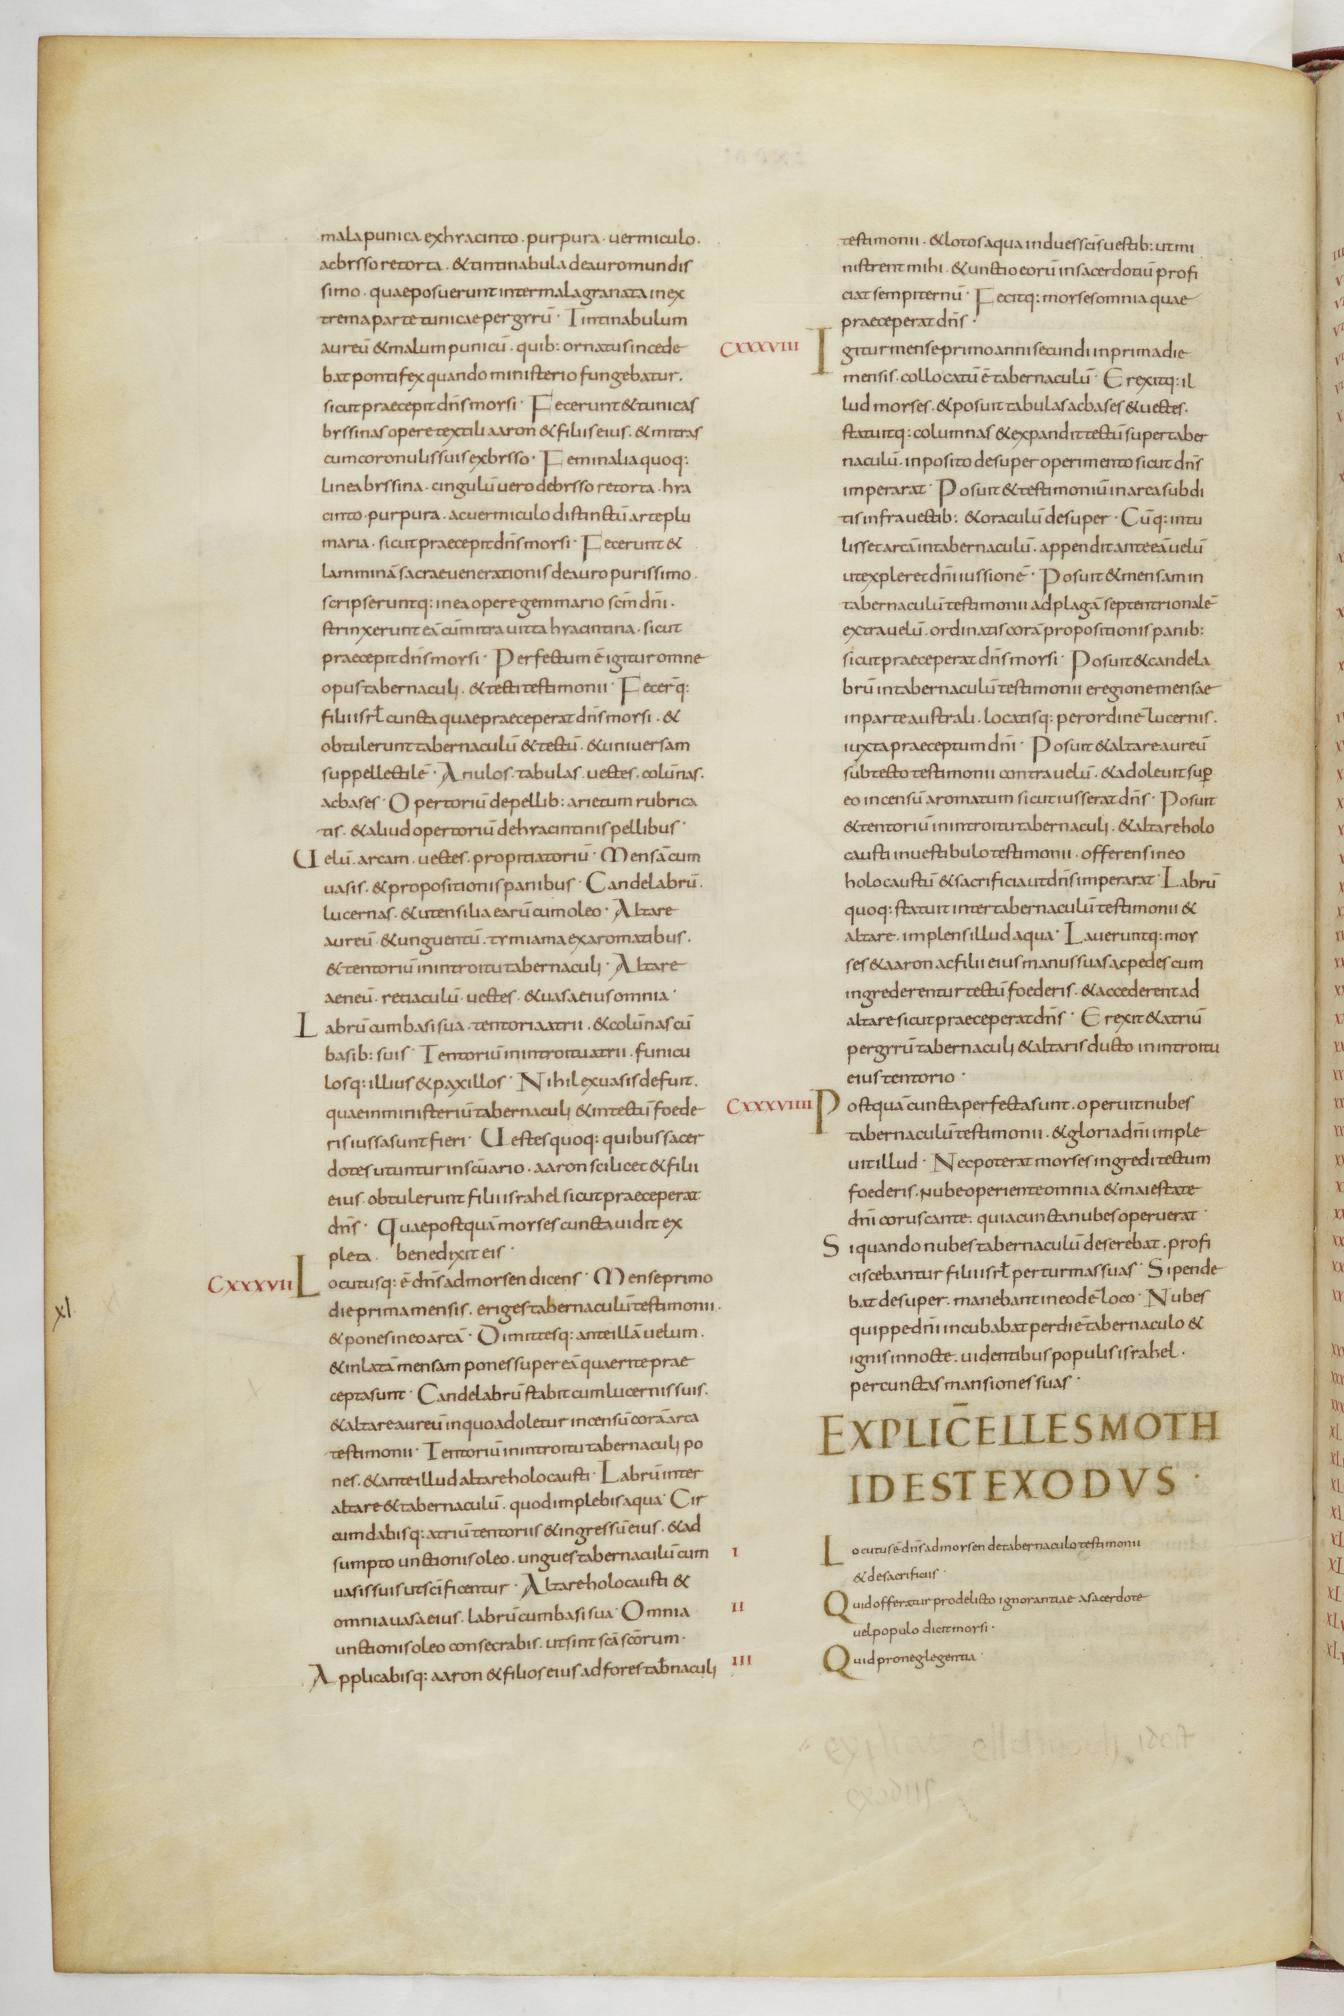 mala punica exhyacinto . purpura . uermiculo .
acbysso retorta . & tintinabula deauro mundis
simo . quae posuerunt intermalagranata inex
trema parte tunicae pergyrū · Tintinabulum
aureū & malum punicū . quib: ornatus incede
bat pontifex quando ministerio fungebatur .
sicut praecepit dn̄s moysi · Fecerunt & tunicas
byssinas opere textili aaron & filiis eius . & mitras
cum coronulis suis exbysso · Feminalia quoq:
linea byssina . cingulū uero debysso retorta . hya
cinto . purpura . ac uermiculo distinctū arte plu
maria . sicut praecepit dn̄s moysi · Fecerunt &
lamminā sacrae uenerationis deauro purissimo .
scripseruntq: inea opere gemmario scm̄ dn̄i .
strinxerunt eā cūmitra uitta hyacintina . sicut
praecepit dn̄s moysi · Perfectum ē igitur omne
opus tabernaculi . & tecti testimonii · Fecer̄q:
filii isrƚ cuncta quae praeceperat dn̄s moysi . &
obtulerunt tabernaculū & tectū . & uniuersam
suppellectilē · Anulos . tabulas . uectes . colūnas .
acbases · Opertoriū depellib: arietum rubrica
tis . & aliud opertoriū dehyacintinis pellibus ·
Uelū . arcam . uectes . propitiatoriū · Mensā cum
uasis . & propositionis panibus · Candelabrū .
lucernas . & utensilia earū cum oleo · Altare
aureū . & unguentū . tymiama exaromatibus .
& tentoriū inintroitu tabernaculi · Altare
aeneū . retiaculū . uectes . & uasa eius omnia ·
Labrū cum basi sua . tentoria atrii . & colūnas cū
basib: suis · Tentoriū inintroitu atrii . funicu
losq: illius & paxillos · Nihil exuasis defuit .
quae inministeriū tabernaculi & intectū foede
ris iussa sunt fieri · Uestes quoq: quibus sacer
dotes utuntur insc̄uario . aaron scilicet & filii
eius . obtulerunt filii israhel sicut praeceperat
dn̄s · Quae postquā moyses cuncta uidit ex
pleta . benedixit eis ·
CXXXVII Locutusq: ē dn̄s ad moysen dicens · Mense primo
die prima mensis . eriges tabernaculū testimonii .
& pones ineo arcā · Dimittesq: ante illā uelum .
& inlatā mensam pones super eā quae rite prae
cepta sunt · Candelabrū stabit cum lucernis suis .
& altare aureū inquo adoletur incensū corā arca
testimonii · Tentoriū inintroitu tabernaculi po
nes . & ante illud altare holocausti · Labrū inter
altare & tabernaculū . quod implebis aqua · Cir
cumdabisq: atriū tentoriis & ingressū eius . & ad
sumpto unctionis oleo . ungues tabernaculū cum
uasis suis ut sc̄ificentur · Altare holocausti &
omnia uasa eius . labrū cum basi sua · Omnia
unctionis oleo consecrabis . ut sint sc̄a sc̄orum ·
Applicabisq: aaron & filios eius ad fores tab̄naculi
xl
testimonii . & lotos aqua indues sc̄is uestib: ut mi
nistrent mihi . & unctio eorū insacerdotiū profi
ciat sempiternū · Fecitq: moyses omnia quae
praeceperat dn̄s ·
CXXXVIII Igitur mense primo anni secundi inprima die
mensis . collocatū ē tabernaculū · Erexitq: il
lud moyses . & posuit tabulas acbases & uectes .
statuitq: columnas & expandit tectū super taber
naculū . inposito desuper operimento sicut dn̄s
imperarat · Posuit & testimoniū inarca subdi
tis infra uectib: & oraculū desuper · Cūq: intu
lisset arcā intabernaculū . appendit ante eā uelū
ut expleret dn̄i iussionē · Posuit & mensam in
tabernaculū testimonii ad plagā septentrionalē
extra uelū . ordinatis corā propositionis panib:
sicut praeceperat dn̄s moysi · Posuit & candela
brū intabernaculū testimonii eregione mensae
inparte australi . locatisq: per ordinē lucernis .
iuxta praeceptum dn̄i · Posuit & altare aureū
sub tecto testimonii contra uelū . & adoleuit sup̄
eo incensū aromatum sicut iusserat dn̄s · Posuit
& tentoriū inintroitu tabernaculi . & altare holo
causti inuestibulo testimonii . offerens ineo
holocaustū & sacrificia ut dn̄s imperarat · Labrū
quoq: statuit inter tabernaculū testimonii &
altare . implens illud aqua · Laueruntq: moy
ses & aaron ac filii eius manus suas ac pedes cum
ingrederentur tectū foederis . & accederent ad
altare sicut praeceperat dn̄s · Erexit & atriū
per gyrū tabernaculi & altaris ducto inintroitu
eius tentorio ·
CXXXVIIII Postquā cuncta perfecta sunt . operuit nubes
tabernaculū testimonii . & gloria dn̄i imple
uit illud · Nec poterat moyses ingredi tectum
foederis . nube operiente omnia & maiestate
dn̄i coruscante . quia cuncta nubes operuerat ·
Si quando nubes tabernaculū deserebat . profi
ciscebantur filii isrƚ per turmas suas · Si pende
bat desuper . manebant ineodē loco · Nubes
quippe dn̄i incubabat per diē tabernaculo &
ignis innocte . uidentibus populis israhel .
per cunctas mansiones suas ·
EXPLIC̄ ELLESMOTH
ID EST EXODVS ·
I Locutus ē dn̄s ad moysen de tabernaculo testimonii
& de sacrificiis ·
II Quid offeratur pro delicto ignorantiae a sacerdote
uel populo dicit moysi ·
III Quid pro neglegentia ·